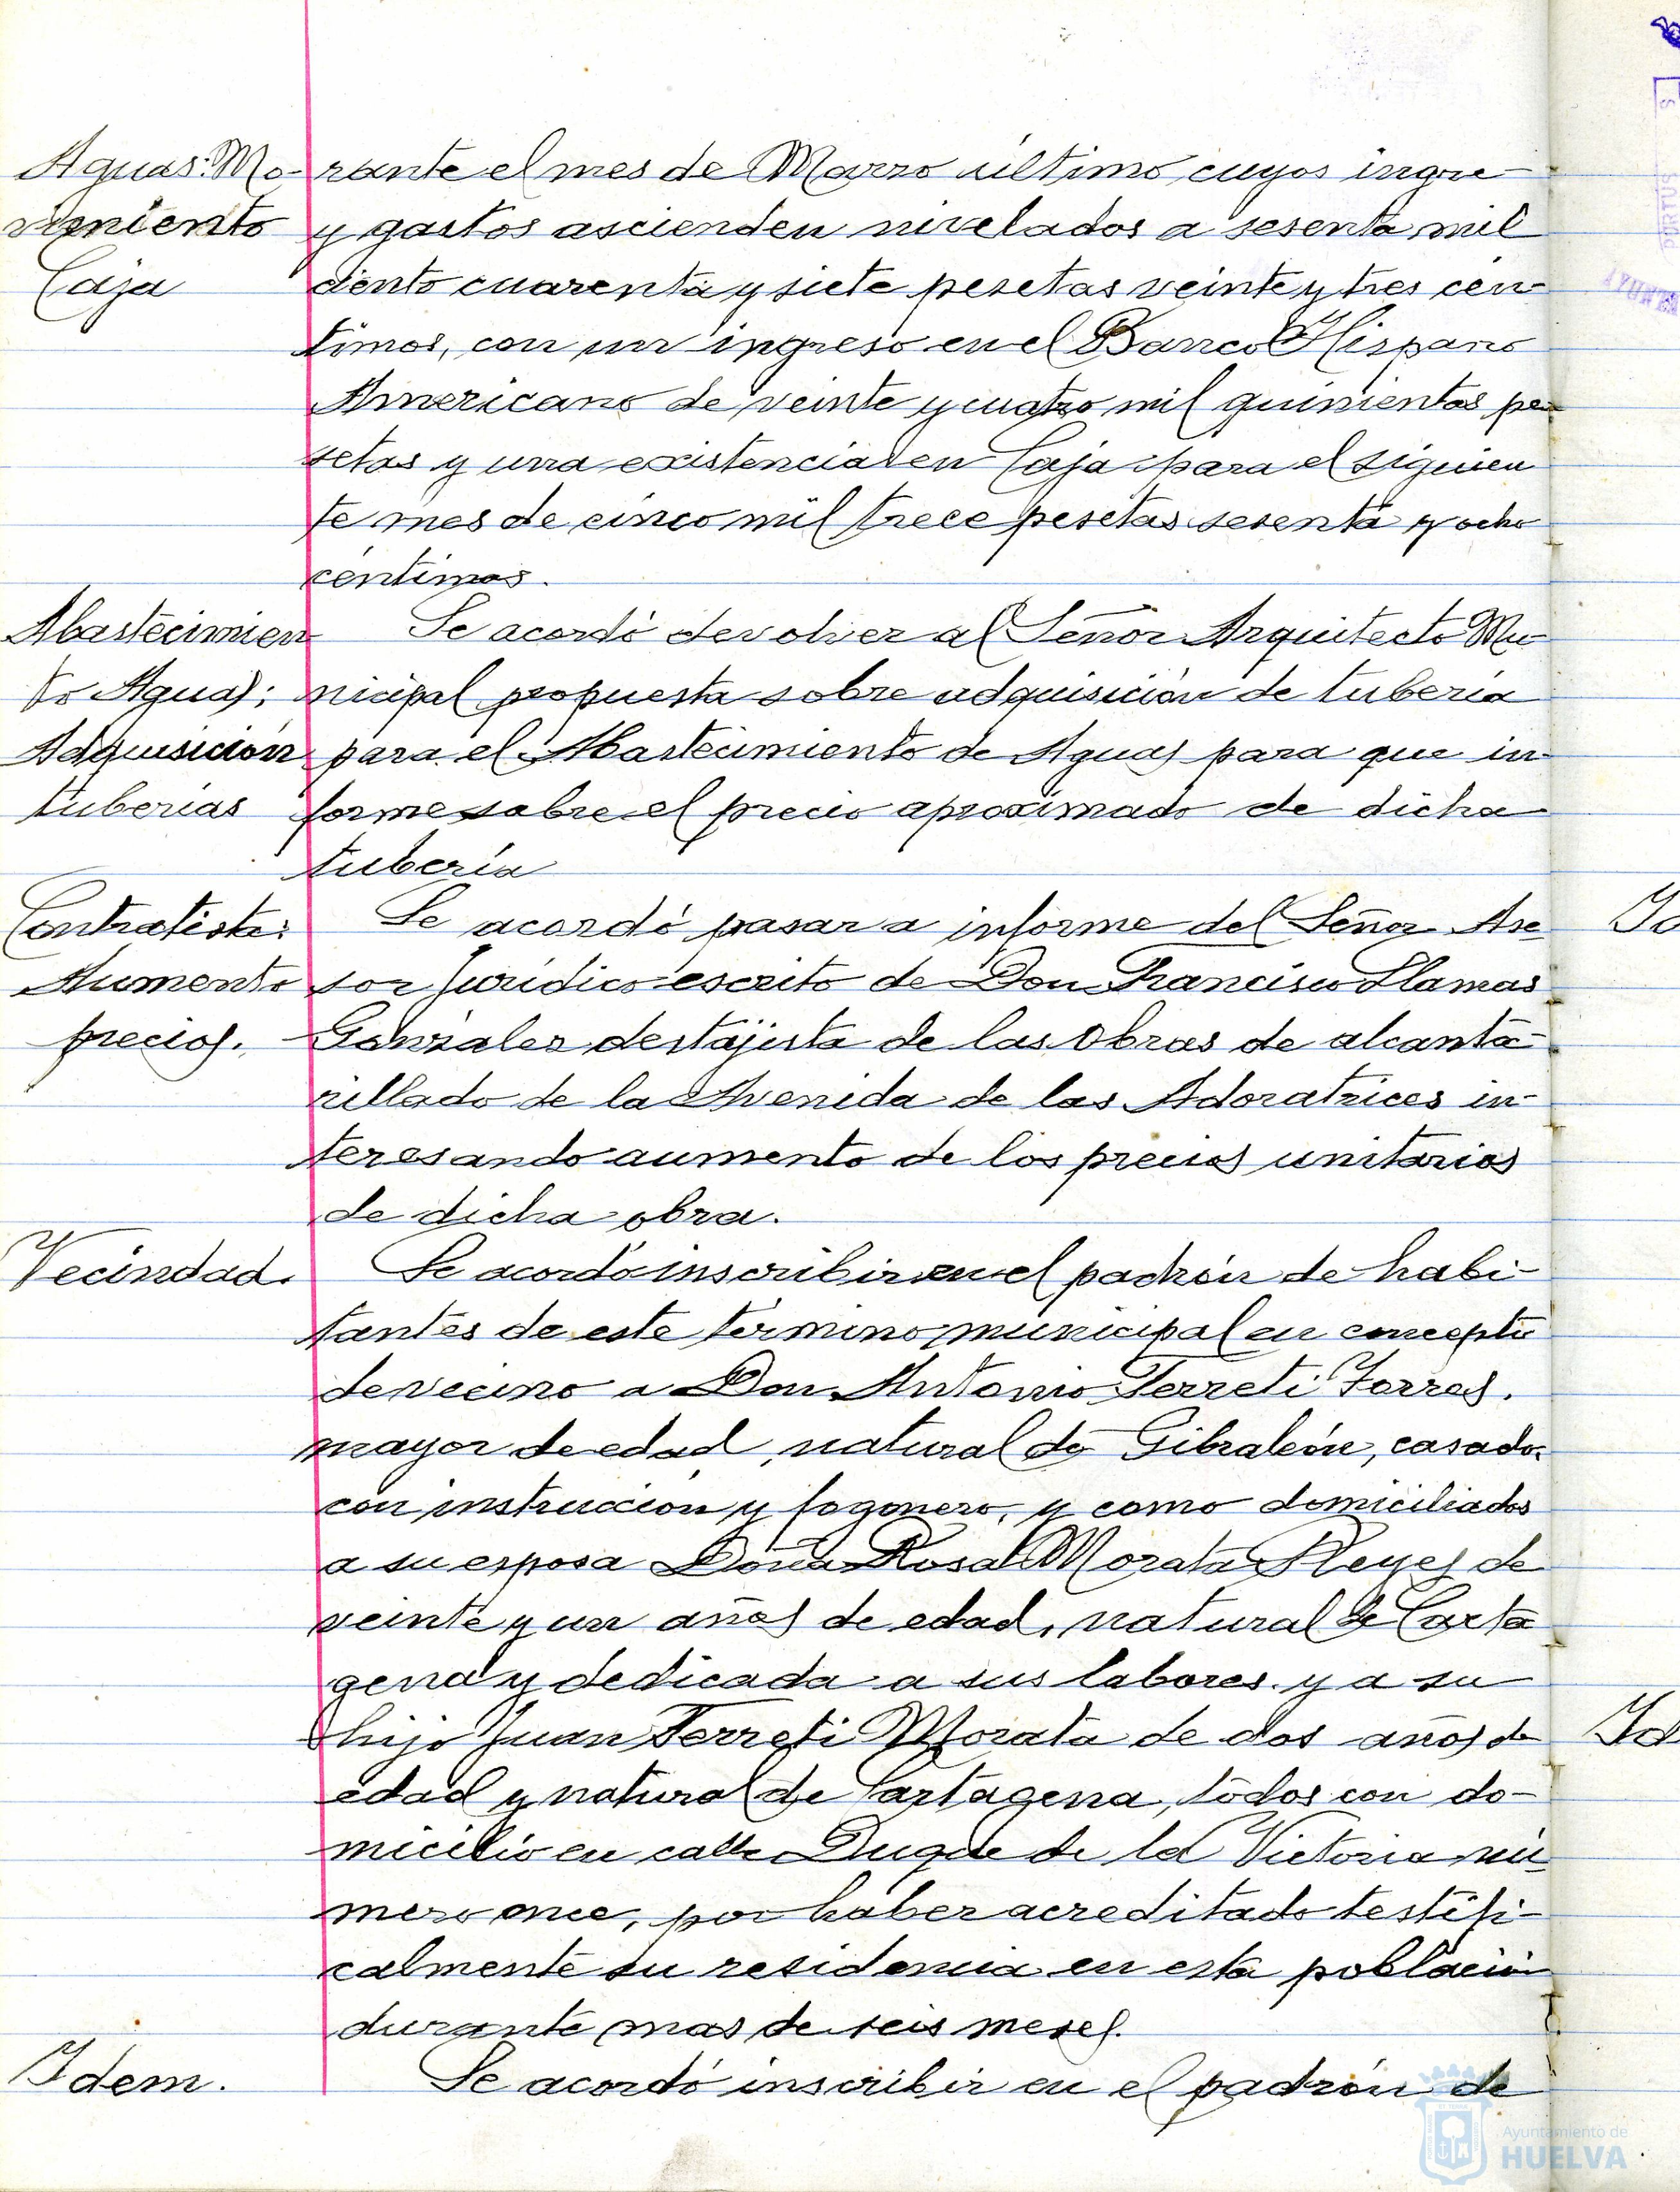 Aguas: Mo-
vimiento
Caja
rante el mes de Marzo último cuyos ingre
y gastos ascienden nivelados a sesenta mil
ciento cuarenta y siete pesetas veinte y tres cén-
timos, con un ingreso en el Banco Hispano
Americano de veinte y cuatro mil quinientas pe-
setas y una existencia en Caja para el siguien
te mes de cinco mil trece pesetas sesenta y ocho
céntimos.
Abastecimien
to Aguas:
Adquisición
tuberías
Se acordó devolver al Señor Arquitecto Mu-
nicipal propuesta sobre adquisición de tubería
para el Abastecimiento de Aguas para que in-
forme sobre el precio aproximado de dicha
tubería
Contratista:
Aumento
precios.
Se acordó pasar a informe del Señor Ase-
sor Jurídico escrito de Don Francisco Llamas
Gonzalez destajista de las Obras de alcanta-
rillado de la Avenida de las Adoratrices in-
teresando aumento de los precios unitarios
de dicha obra.
Vecindad.
Se acordó inscribir en el padrón de habi-
tantes de este término municipal en concepto
de vecino a Don Antonio Ferreti Torres.
mayor de edad, natural de Gibraleón, casado.
con instrucción y fogonero, y como domiciliados
a su esposa Doña Rosa Morata Reyes de
veinte y un años de edad, natural de Carta
gena y dedicada a sus labores y a su
hijo Juan Ferreti Morata de dos años de
edad y natural de Cartagena, todos con do-
micilio en calle Duque de la Victoria nú-
mero once, por haber acreditado testifi-
calmente su residencia en esta población
durante mas de seis meses.
Idem.
Se acordó inscribir en el padrón de
Id
Id
Ayuntamiento de
HUELVA